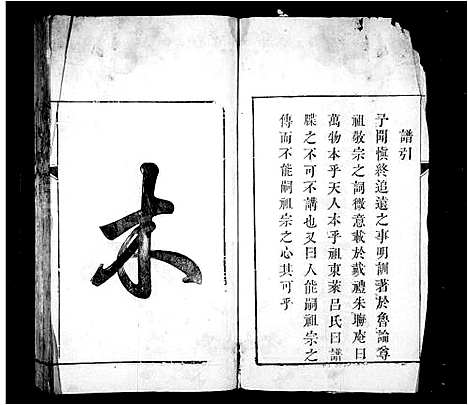 譜引
予聞慎終追遠之事明訓著於魯論尊
祖敬宗之詞微意載於戴禮朱晦庵曰
萬物本乎天人本乎祖東萊呂氏曰譜
牒之不可不講也又曰人能嗣祖宗之
傳而不能嗣祖宗之心其可乎
木